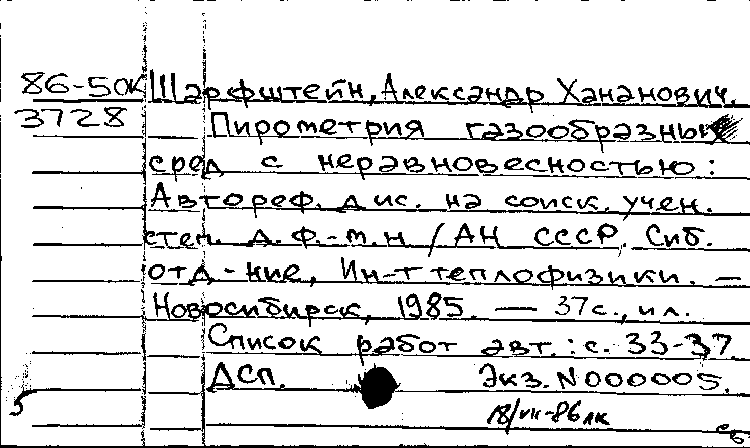 86-50к Шарфштейн, Александр Хананович.
3728 Пирометрия газообразных
сред с неравновесностью:
Автореф. дис. на соиск. учен.
степ. д. ф.-м. н / АН СССР. Сиб.
отд-ние, Ин-т теплофизики. —
Новосибирск, 1985. — 37 с., ил.
Список работ авт.: с. 33-37
ДСП. Экз. N 000005.
5 18/VII-86 лк